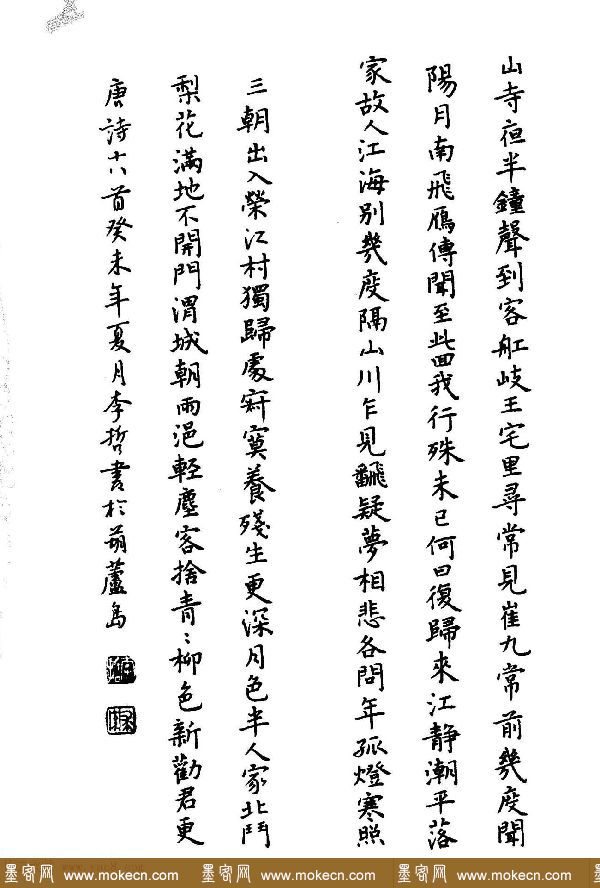 山寺亱半鐘聲到客舡岐王宅里尋常見崔九常前幾度聞
陽月南飛鴈傳聞至此囬我行殊未已何日復歸來江靜潮平落
家故人江海別幾度隔山川乍見飜疑夢相悲各問年孤燈寒照
三朝出入榮江村獨歸處寂寞養殘生更深月色半人家北鬥
梨花滿地不開門渭城朝雨浥輕塵客捨青〻柳色新勸君更
唐詩十八首癸未年夏月李哲書於葫蘆島
墨客网 www.mokecn.com 墨客网 www.mokecn.com 墨客网 www.mokecn.com 墨客网 www.mokecn.com